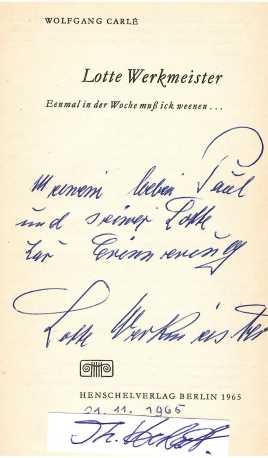 WOLFGANG CARLÉ
Lotte Werkmeister
Eenmal in der Woche muß ick weenen...
meinem lieben Paul
und seiner Lotte
zur Erinnerung
Lotte Werkmeister
HENSCHELVERLAG BERLIN 1965
21. 11. 1965
Th.